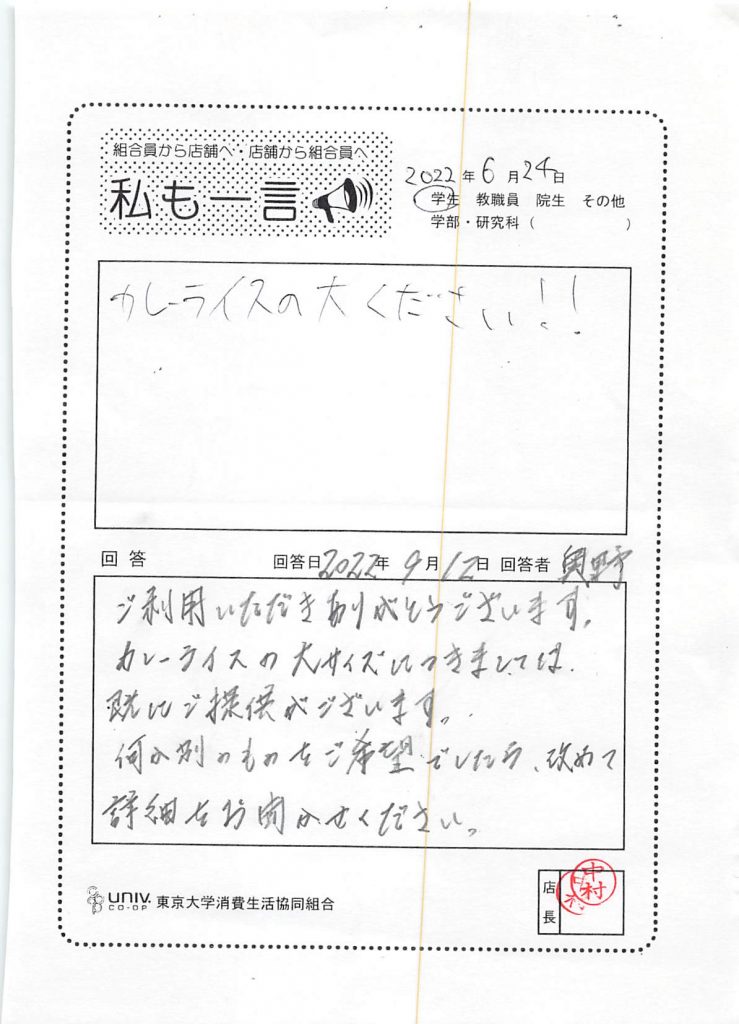 組合員から店舗へ・店舗から組合員へ
私も一言
2022年6月24日
学生 教職員 院生 その他
学部・研究科( )
カレーライスの大ください!!
回答 回答日2022年9月12日 回答者 奥野
ご利用いただきありがとうございます。
カレーライスの大サイズにつきましては、
既にご提供がございます。
何か別のものをご希望でしたら、改めて
詳細をお聞かせください。
UNIV. CO-OP 東京大学消費生活協同組合
店長
中村